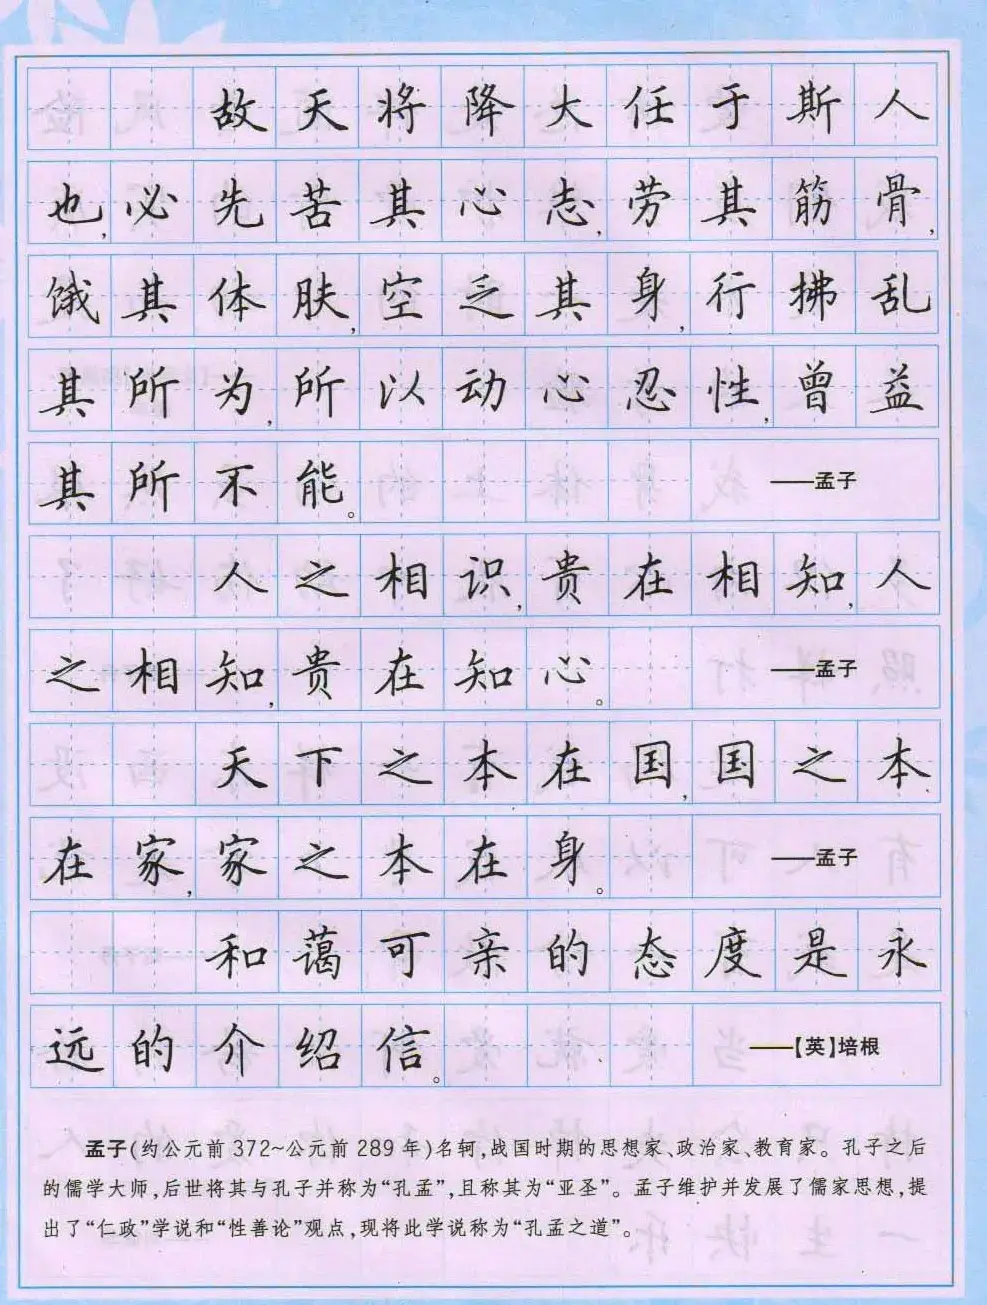 故天将降大任于斯人
也,必先苦其心志,劳其筋骨,
饿其体肤,空乏其身,行拂乱
其所为,所以动心忍性,曾益
其所不能。 ——孟子
人之相识,贵在相知,人
之相知,贵在知心。 ——孟子
天下之本在国,国之本
在家,家之本在身。 ——孟子
和蔼可亲的态度是永
远的介绍信。 ——【英】培根
孟子(约公元前372~公元前289年)名轲,战国时期的思想家、政治家、教育家。孔子之后
的儒学大师,后世将其与孔子并称为“孔孟”,且称其为“亚圣”。孟子维护并发展了儒家思想,提
出了“仁政”学说和“性善论”观点,现将此学说称为“孔孟之道”。